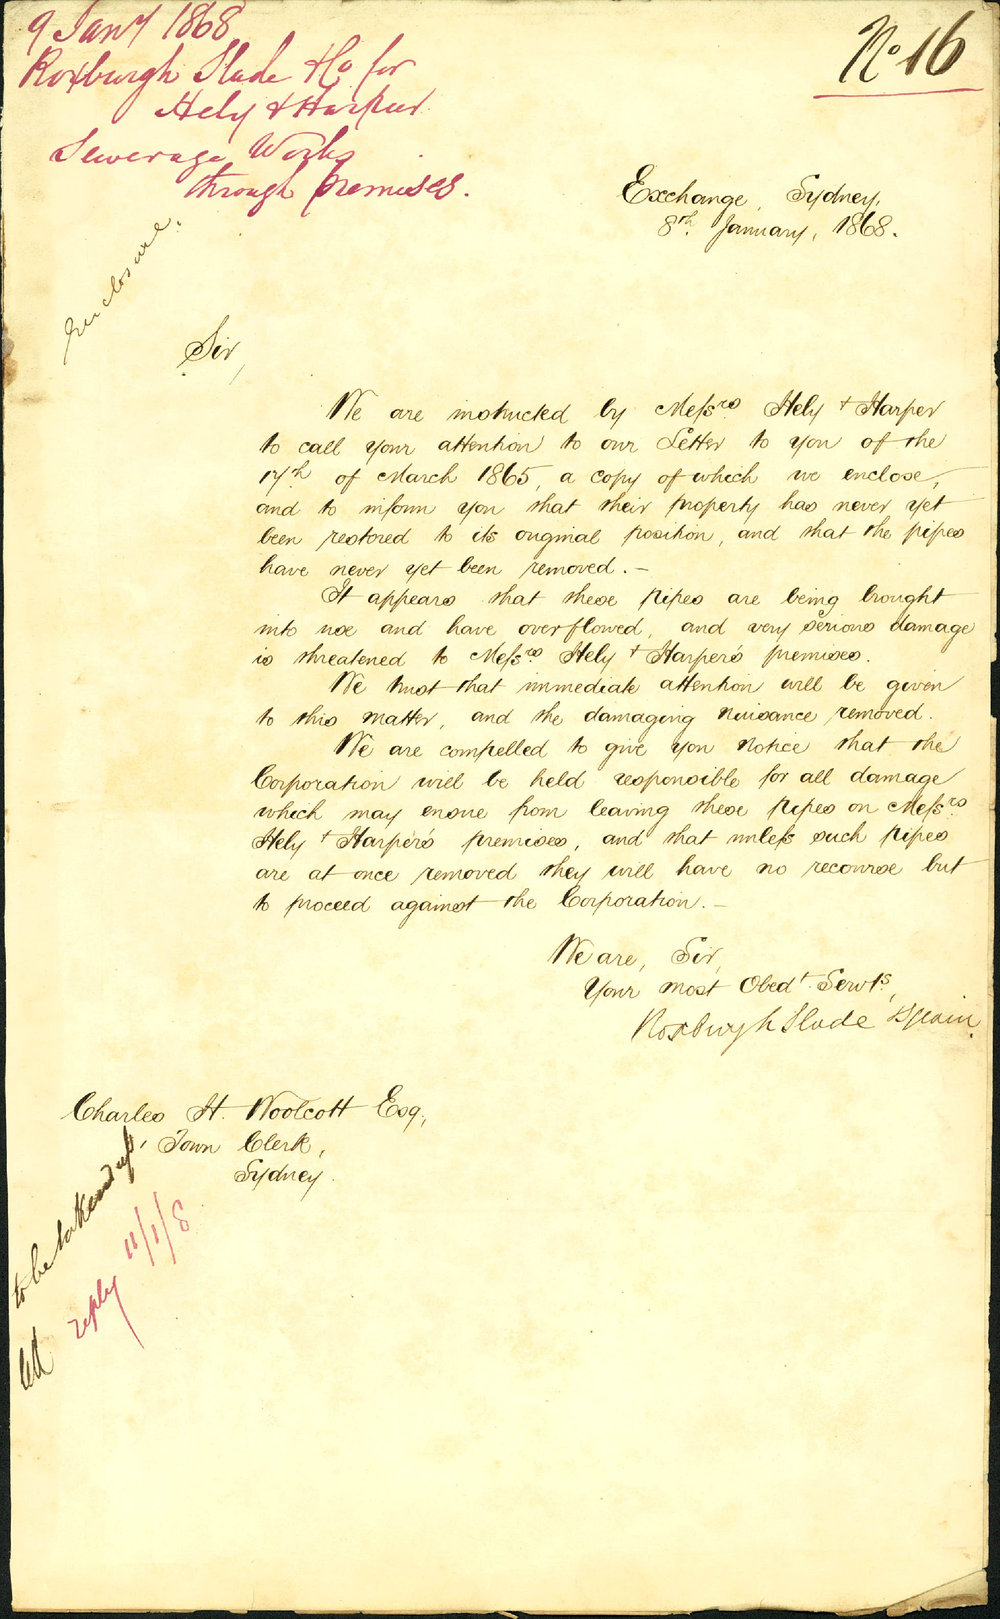 9 Jany 1868
Roxburgh Slade & Co for
Hely & Harper
Sewerage Works
through premises.
No 16
Enclosure.
Exchange, Sydney,
8th. January, 1868.
Sir,
We are instructed by Messrs. Hely & Harper
to call your attention to our Letter to you of the
17th. of March 1865, a copy of which we enclose,
and to inform you that their property has never yet
been restored to its original position, and that the pipes
have never yet been removed. —
It appears that these pipes are being brought
into use and have overflowed, and very serious damage
is threatened to Messrs. Hely & Harper's premises.
We trust that immediate attention will be given
to this matter, and the damaging nuisance removed.
We are compelled to give you notice that the
Corporation will be held responsible for all damage
which may ensue from leaving these pipes on Messrs.
Hely & Harper's premises, and that unless such pipes
are at once removed they will have no recourse but
to proceed against the Corporation. —
We are, Sir,
Your most Obedt. Servts,
Roxburgh Slade &
Charles H. Woolcott Esq.,
Town Clerk,
Sydney.
to be taken up
reply 11/1/8